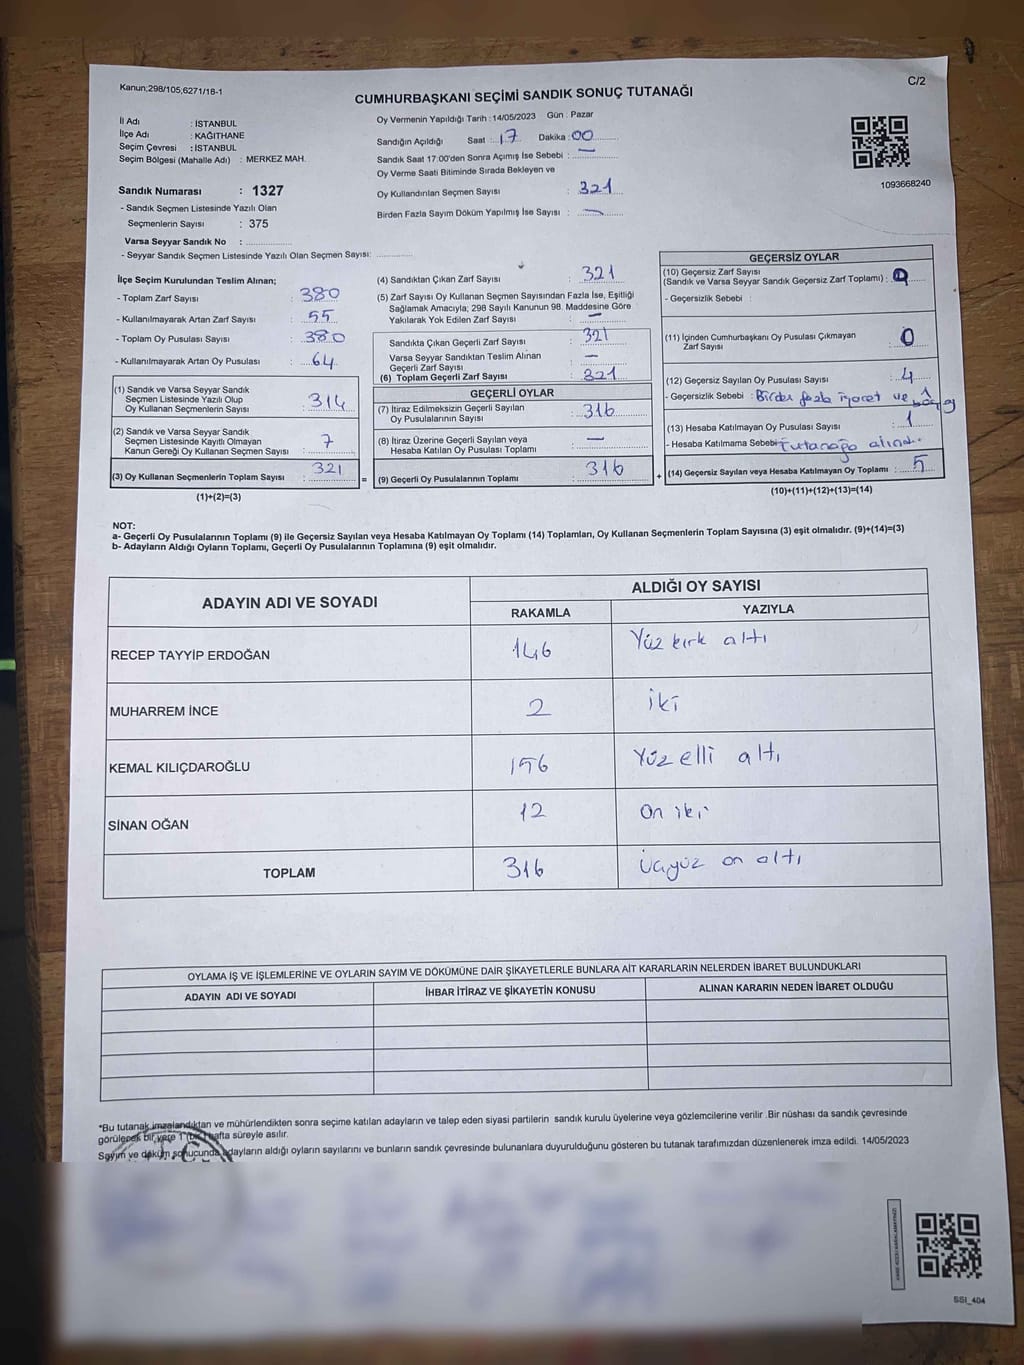 Kanun;298/105,6271/18-1
C/2
CUMHURBAŞKANI SEÇİMİ SANDIK SONUÇ TUTANAĞI
İl Adı : İSTANBUL
İlçe Adı : KAĞITHANE
Seçim Çevresi : İSTANBUL
Seçim Bölgesi (Mahalle Adı) : MERKEZ MAH.
Sandık Numarası : 1327
- Sandık Seçmen Listesinde Yazılı Olan
Seçmenlerin Sayısı : 375
Varsa Seyyar Sandık No :
- Seyyar Sandık Seçmen Listesinde Yazılı Olan Seçmen Sayısı:
Oy Vermenin Yapıldığı Tarih : 14/05/2023 Gün : Pazar
Sandığın Açıldığı Saat : 17 Dakika : 00
Sandık Saat 17:00'den Sonra Açımış İse Sebebi : —
Oy Verme Saati Bitiminde Sırada Bekleyen ve
Oy Kullandırılan Seçmen Sayısı : 321
Birden Fazla Sayım Döküm Yapılmış İse Sayısı : —
1093668240
İlçe Seçim Kurulundan Teslim Alınan;
- Toplam Zarf Sayısı : 380
- Kullanılmayarak Artan Zarf Sayısı : 55
- Toplam Oy Pusulası Sayısı : 380
- Kullanılmayarak Artan Oy Pusulası : 64
(1) Sandık ve Varsa Seyyar Sandık
Seçmen Listesinde Yazılı Olup
Oy Kullanan Seçmenlerin Sayısı : 314
(2) Sandık ve Varsa Seyyar Sandık
Seçmen Listesinde Kayıtlı Olmayan
Kanun Gereği Oy Kullanan Seçmen Sayısı : 7
(3) Oy Kullanan Seçmenlerin Toplam Sayısı : 321
(1)+(2)=(3)
(4) Sandıktan Çıkan Zarf Sayısı : 321
(5) Zarf Sayısı Oy Kullanan Seçmen Sayısından Fazla İse, Eşitliği
Sağlamak Amacıyla; 298 Sayılı Kanunun 98. Maddesine Göre
Yakılarak Yok Edilen Zarf Sayısı : —
Sandıkta Çıkan Geçerli Zarf Sayısı : 321
Varsa Seyyar Sandıktan Teslim Alınan
Geçerli Zarf Sayısı : —
(6) Toplam Geçerli Zarf Sayısı : 321
GEÇERLİ OYLAR
(7) İtiraz Edilmeksizin Geçerli Sayılan
Oy Pusulalarının Sayısı : 316
(8) İtiraz Üzerine Geçerli Sayılan veya
Hesaba Katılan Oy Pusulası Toplamı : —
= (9) Geçerli Oy Pusulalarının Toplamı : 316
GEÇERSİZ OYLAR
(10) Geçersiz Zarf Sayısı
(Sandık ve Varsa Seyyar Sandık Geçersiz Zarf Toplamı) : 0
- Geçersizlik Sebebi :
(11) İçinden Cumhurbaşkanı Oy Pusulası Çıkmayan
Zarf Sayısı : 0
(12) Geçersiz Sayılan Oy Pusulası Sayısı : 4
- Geçersizlik Sebebi : Birden fazla işaret ve
(13) Hesaba Katılmayan Oy Pusulası Sayısı : 1
- Hesaba Katılmama Sebebi: Tutanağa alındı.
+ (14) Geçersiz Sayılan veya Hesaba Katılmayan Oy Toplamı : 5
(10)+(11)+(12)+(13)=(14)
NOT:
a- Geçerli Oy Pusulalarının Toplamı (9) ile Geçersiz Sayılan veya Hesaba Katılmayan Oy Toplamı (14) Toplamları, Oy Kullanan Seçmenlerin Toplam Sayısına (3) eşit olmalıdır. (9)+(14)=(3)
b- Adayların Aldığı Oyların Toplamı, Geçerli Oy Pusulalarının Toplamına (9) eşit olmalıdır.
ADAYIN ADI VE SOYADI
ALDIĞI OY SAYISI
RAKAMLA YAZIYLA
RECEP TAYYİP ERDOĞAN 146 Yüz kırk altı
MUHARREM İNCE 2 iki
KEMAL KILIÇDAROĞLU 156 Yüz elli altı
SİNAN OĞAN 12 on iki
TOPLAM 316 üçyüz on altı
OYLAMA İŞ VE İŞLEMLERİNE VE OYLARIN SAYIM VE DÖKÜMÜNE DAİR ŞİKAYETLERLE BUNLARA AİT KARARLARIN NELERDEN İBARET BULUNDUKLARI
ADAYIN ADI VE SOYADI İHBAR İTİRAZ VE ŞİKAYETİN KONUSU ALINAN KARARIN NEDEN İBARET OLDUĞU
*Bu tutanak imzalandıktan ve mühürlendikten sonra seçime katılan adayların ve talep eden siyasi partilerin sandık kurulu üyelerine veya gözlemcilerine verilir .Bir nüshası da sandık çevresinde
görülecek bir yere 1 (bir) hafta süreyle asılır.
Sayım ve döküm sonucunda adayların aldığı oyların sayılarını ve bunların sandık çevresinde bulunanlara duyurulduğunu gösteren bu tutanak tarafımızdan düzenlenerek imza edildi. 14/05/2023
T.C.
SSI_404